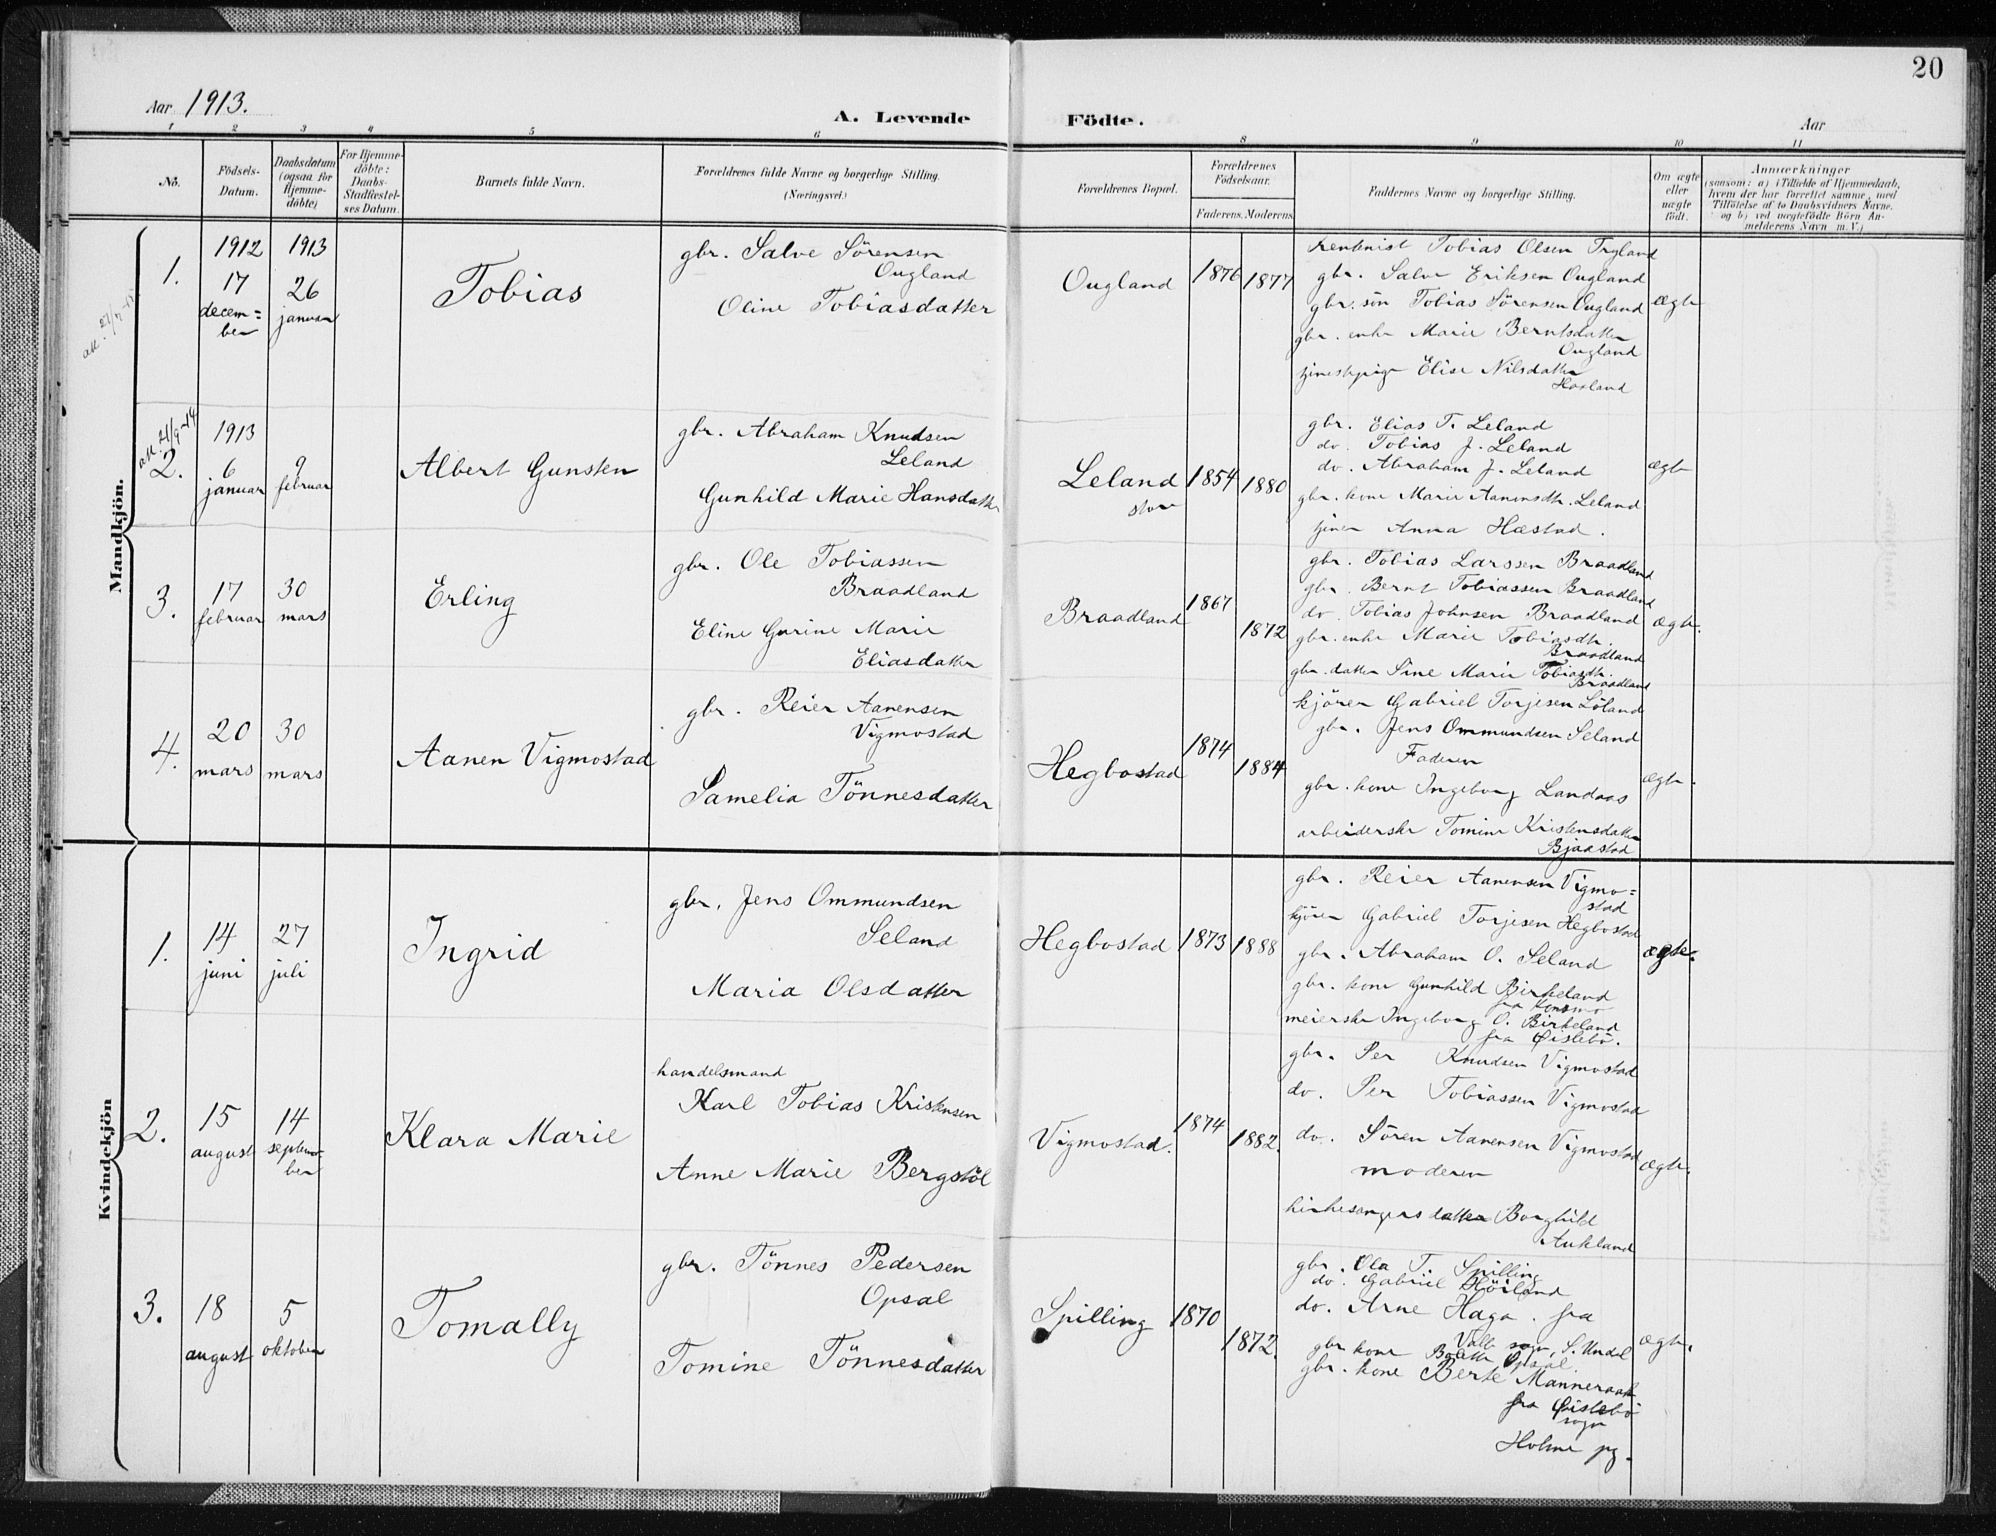 20
Aar 1913.
A. Levende Födte.
Aar
1 2 3 4 5 6 8 9 10 11
No.
Födsels-
Datum.
Daabsdatum
(ogsaa for
Hjemme-
döbte)
For Hjemme-
döbte:
Daabs-
Stadfæstel-
ses Datum.
Barnets fulde Navn.
Forældrenes fulde Navne og borgerlige Stilling.
(Næringsvei.)
Forældrenes Bopæl.
Forældrenes
Födselsaar.
Faderens. Moderens.
Faddernes Navne og borgerlige Stilling.
Om ægte
eller
uægte
födt.
Anmærkninger
(saasom: a) i Tilfælde af Hjemmedaab,
hvem der har forrettet samme, med
Tilföielse af to Daabsvidners Navne.
og b) ved uægtefödte Börn An-
melderens Navn m. V.)
Mandkjön.
1.
1912
17
decem=
ber
1913
26
januar
Tobias
gbr. Salve Sörensen
Ougland
Oline Tobiasdatter
Ougland
1876
1877
Tobias Olsen Tryland
gbr. Salve Eriksen Ougland
gbr. sön Tobias Sörensen Ougland
gbr. enke Marie Berntsdatter
Ougland
tjenestepige Elise Nilsdatter
Haaland
ægte
att. 21/9-14
2.
1913
6
januar
9
februar
Albert Gunsten
gbr. Abraham Knudsen
Leland
Gunhild Marie Hansdatter
Leland
store
1854
1880
gbr. Elias T. Leland
do. Tobias J. Leland
do. Abraham J. Leland
gbr. kone Marie Aanensdtr. Leland
tjener Anna Hæstad.
ægte
3.
17
februar
30
mars
Erling
gbr. Ole Tobiassen
Braadland
Eline Gurine Marie
Eliasdatter
Braadland
1867
1872
gbr. Tobias Larssen Braadland
gbr. Bernt Tobiassen Braadland
do. Tobias Johnsen Braadland
gbr. enke Marie Tobiasdtr.
Braadland
gbr. datter Sine Marie Tobiasdtr.
Braadland
ægte.
4.
20
mars
30
mars
Aanen Vigmostad
gbr. Reier Aanensen
Vigmostad
Samelia Tönnesdatter
Hegbostad
1874
1884
kjörer Gabriel Torjesen Löland
gbr. Jens Ommundsen Seland
Faderen
gbr. kone Ingeborg Landaas
arbeiderske Tomine Kristensdatter
Bjaastad
ægte.
Kvindekjön
1.
14
juni
27
juli
Ingrid
gbr. Jens Ommundsen
Seland
Maria Olsdatter
Hegbostad
1873
1888
gbr. Reier Aanensen Vigmo=
stad
kjörer Gabriel Torjesen Hegbostad
gbr. Abraham O. Seland
gbr. kone Gunhild Birkeland
fra Konsmo
meierske Ingeborg O. Birkeland
fra Öislebö.
ægte.
2.
15
august
14
septem-
ber
Klara Marie
handelsmand
Karl Tobias Kristensen
Anne Marie Bergstöl
Vigmostad.
1874
1882.
gbr. Per Knudsen Vigmostad
do. Per Tobiassen Vigmostad
do. Sören Aanensen Vigmostad
moderen
kirkesangers datter Borghild
Aukland
ægte.
3.
18
august
5
oktober
Tomally
gbr. Tönnes Pedersen
Opsal
Tomine Tönnesdatter
Spilling
1870
1872.
gbr. Ola T. Spilling
do. Gabriel Höiland
do. Arne Haga. fra
Valle sogn, S. Undal
gbr. kone Bolette Opsal.
gbr. kone Berte Manneraak
fra Öislebö
sogn
Holme pg.
ægte.